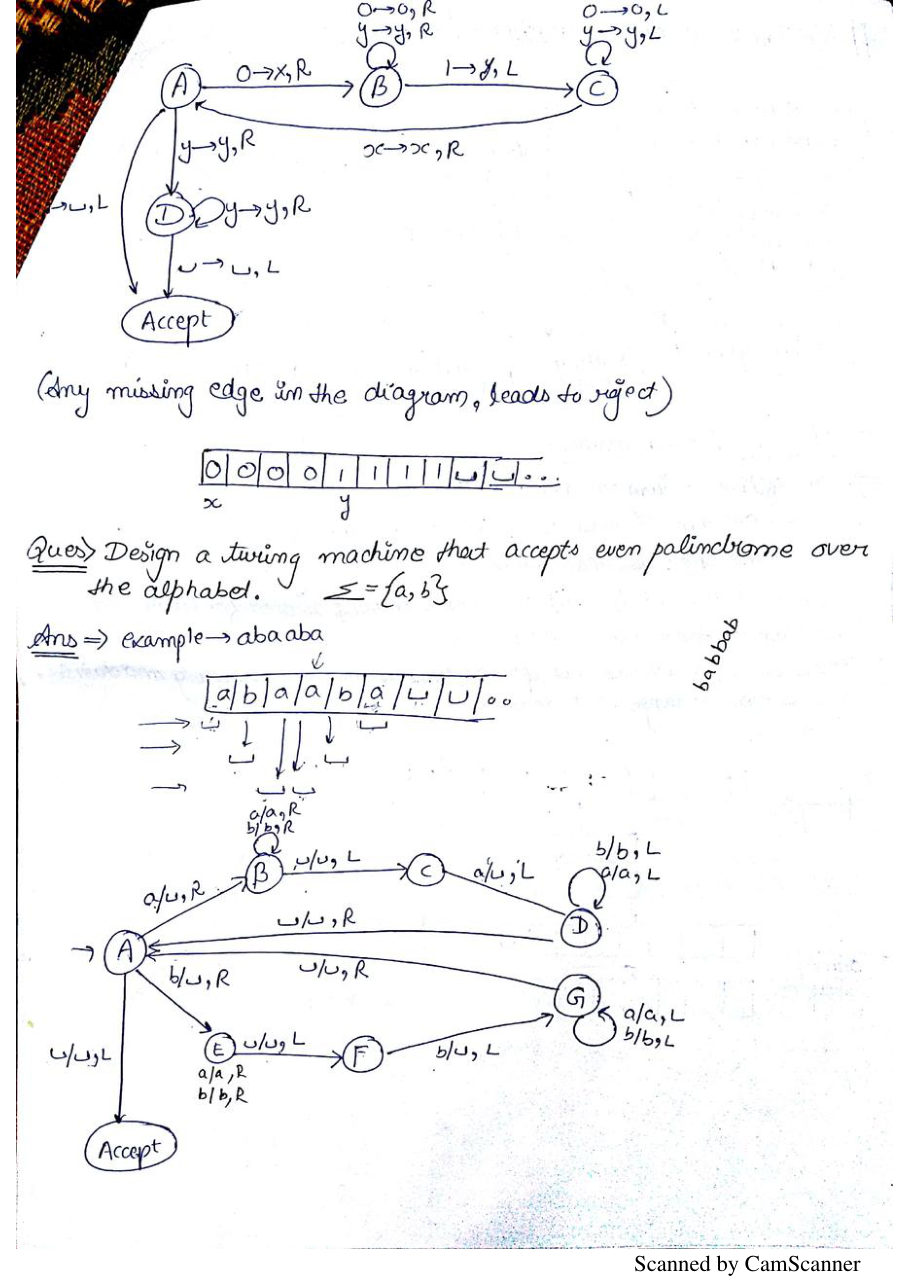 0→0, R
y→y, R
0→0, L
y→y, L
A
0→x, R
B
1→y, L
C
y→y, R
x→x, R
→⊔, L
D
y→y, R
⊔→⊔, L
Accept
(Any missing edge in the diagram, leads to reject)
0 0 0 0 1 1 1 1 ⊔ ⊔ ...
x y
Ques> Design a turing machine that accepts even palindrome over
the alphabet. Σ={a,b}
Ans => example → abaaba
babbab
a b a a b a ⊔ ⊔ ..
⊔ ⊔
⊔ ⊔
⊔ ⊔
a/a, R
b/b, R
B
⊔/⊔, L
C
a/⊔, L
b/b, L
a/a, L
D
a/⊔, R
⊔/⊔, R
A
b/⊔, R
⊔/⊔, R
G
a/a, L
b/b, L
E
⊔/⊔, L
F
b/⊔, L
a/a, R
b/b, R
⊔/⊔, L
Accept
Scanned by CamScanner